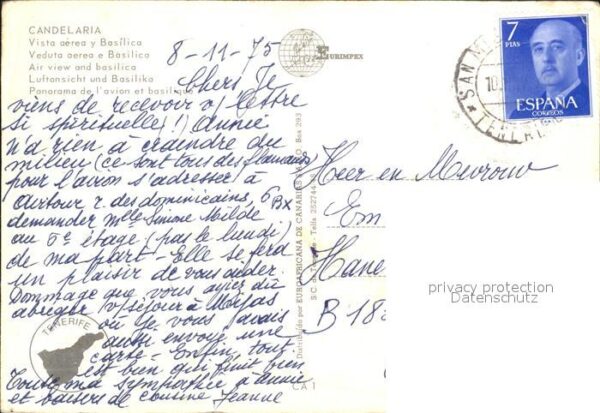 CANDELARIA
Vista aérea y Basílica
Veduta aerea e Basilica
Air view and basilica
Luftansicht und Basilika
Panorama de l'avion et basilique
EURIMPEX
8-11-75
Chers Je
viens de recevoir v/ lettre
si spirituelle (!) Annie
n'a rien à craindre du
milieu (ce sont tous des flamands)
pour l'avion s'adresser à
Autour r. des dominicains, 6 Bx
demander Melle Simone Milde
au 5e étage (pas le lundi)
de ma part - Elle se fera
un plaisir de vous aider.
Dommage que vous ayez dû
abréger v/ séjour à Mijas
où je vous avais
aussi envoyé une
carte - Enfin, tout
est bien qui finit bien
Toute ma sympathie à Annie
et baisers de cousine Jeanne
TENERIFE
CA 1
Distribuido por EUROAFRICANA DE CANARIAS
Box 293
7
PTAS
ESPAÑA
CORREOS
SAN M
10
TENERI
Heer en Mevrouw
Em
Hane
B 183
privacy protection
Datenschutz